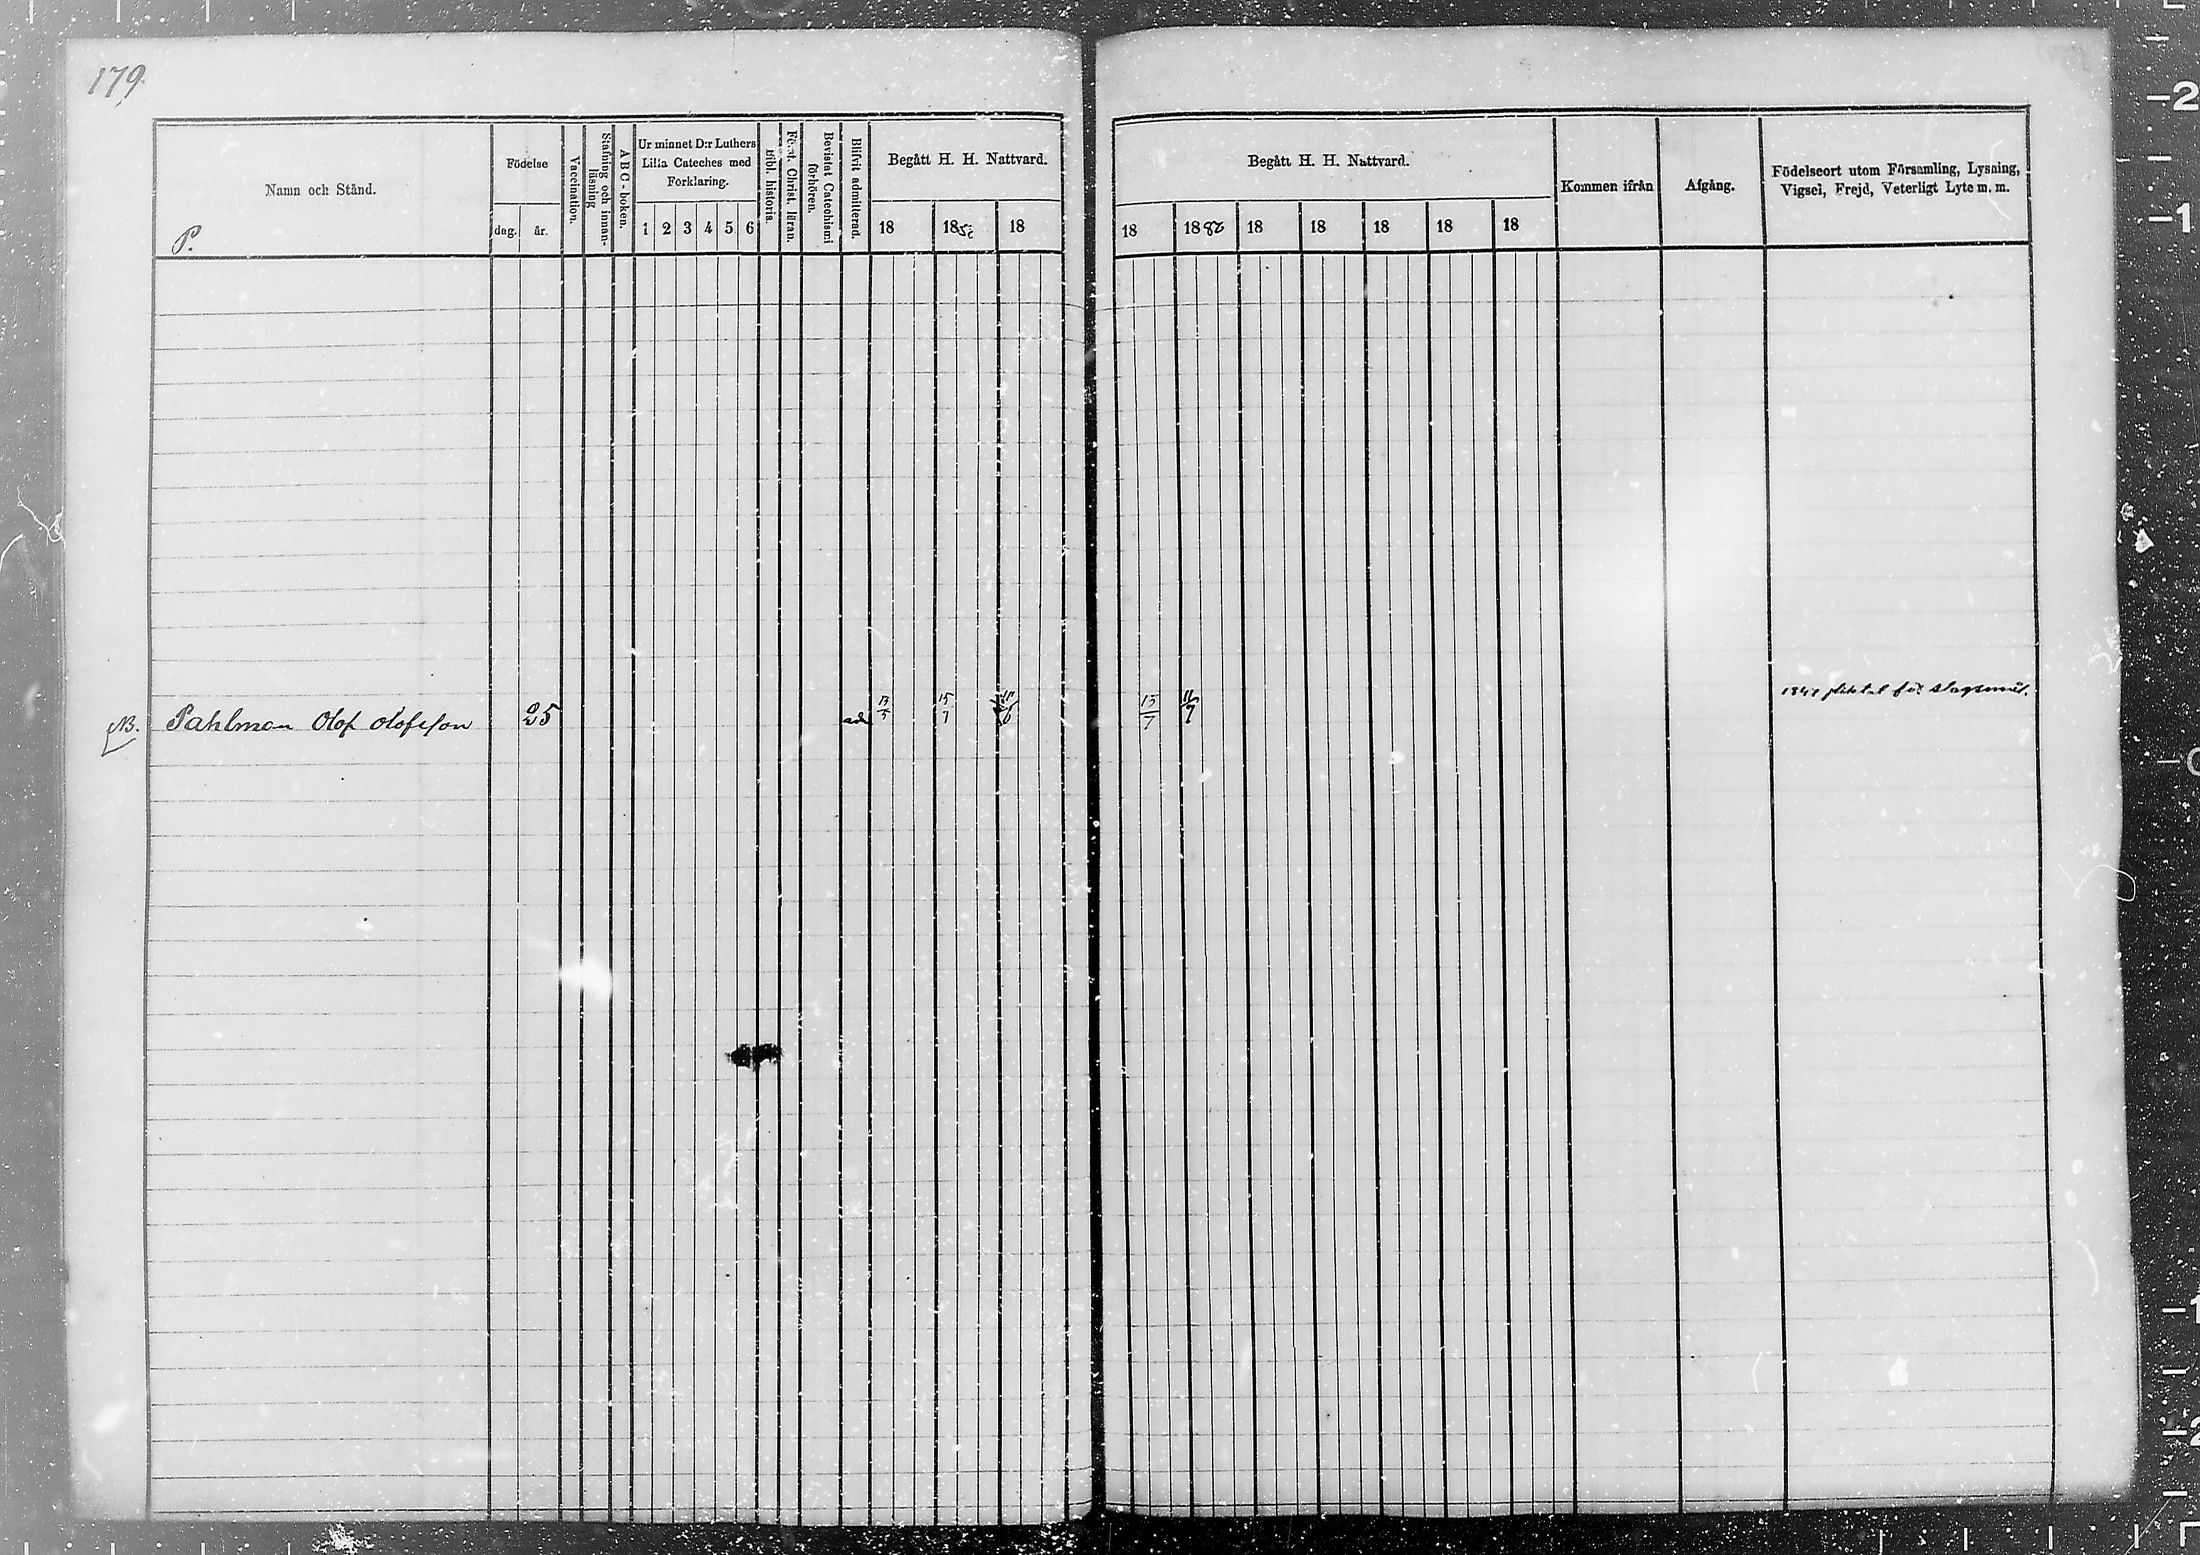 179.
Namn och Stånd.
P.
Födelse
dag. år.
Vaccination.
Stafning och innan-
läsning
ABC-boken.
Ur minnet D:r Luthers
Lilla Cateches med
Förklaring.
1 2 3 4 5 6
Bibl. historia.
Först. Christ. läran.
Bevistat Catechismi
förhören.
Blifvit admitterad.
Begått H. H. Nattvard.
18 18 18
Begått H. H. Nattvard.
18 1882 18 18 18 18 18
Kommen ifrån
Afgång.
Födelseort utom Församling, Lysning,
Vigsel, Frejd, Veterligt Lyte m. m.
NB. Pahlman Olof Olofsson 25 15/7 15/7 11/7
för slagsmål.
-2
-1
-0
-1
-2